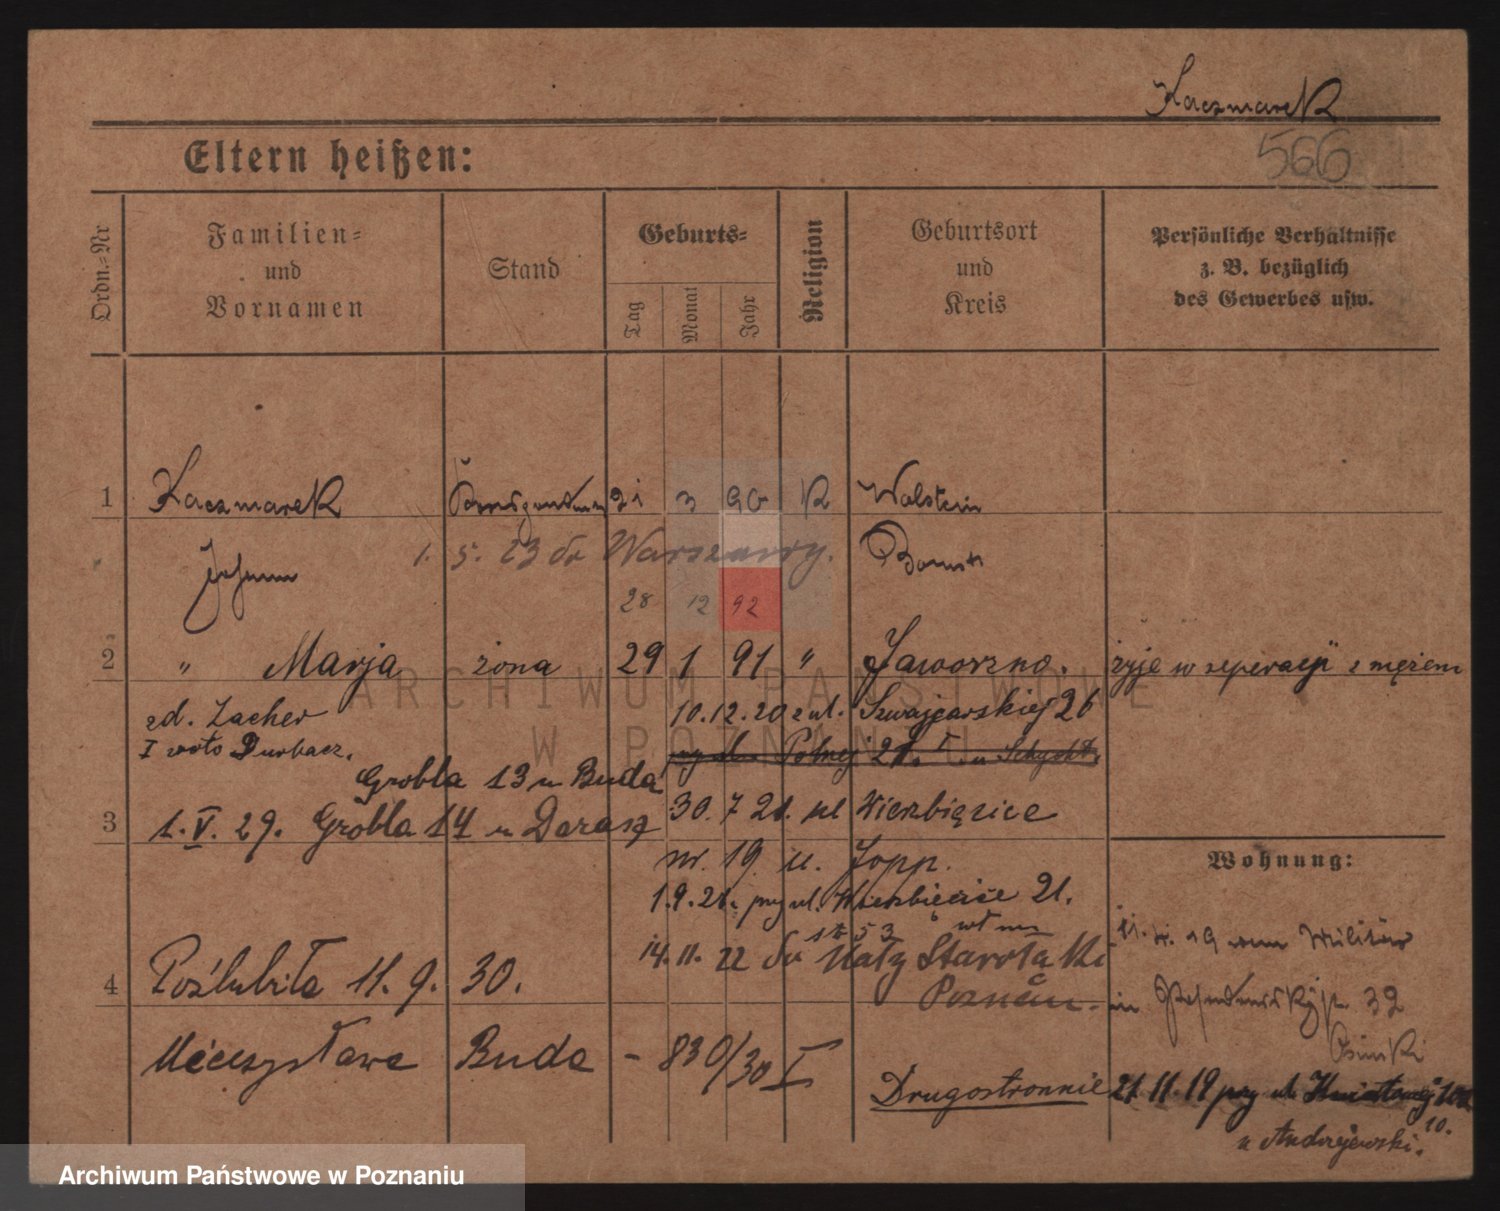 Kaczmarek
566
Eltern heißen:
Ordn.-Nr
Familien- und Vornamen
Stand
Geburts-
Tag
Monat
Jahr
Religion
Geburtsort und Kreis
Persönliche Verhältnisse z. B. bezüglich des Gewerbes usw.
1 Kaczmarek 21 3 90 K Wolstein
Johann Bomst
1. 5. 23 do Warszawy.
28 12 92
2 " Marja żona 29 1 91 " Jaworzno. żyje w seperacji z mężem
zd. Zacher
10.12.20 z ul. Szwajcarskiej 26
I voto Durbacz.
Polnej 21.
Grobla 13 u Buda
30. 7 21. ul Wierzbięcice
3 1. V. 29. Grobla 14 u Darasz
nr. 19 u. Jopp.
Wohnung:
1.9.21. przy ul. Wierzbięcice 21.
19 vom Militär
14. 11. 22 do Mały Starołęka
Poznań
in 32
4 Poślubiła 11. 9. 30.
Mieczysława Buda - 830/30 I
Drugostronnie
21 11. 19 przy ul.
u Andrzejewski.
ARCHIWUM PAŃSTWOWE
W POZNANIU
Archiwum Państwowe w Poznaniu